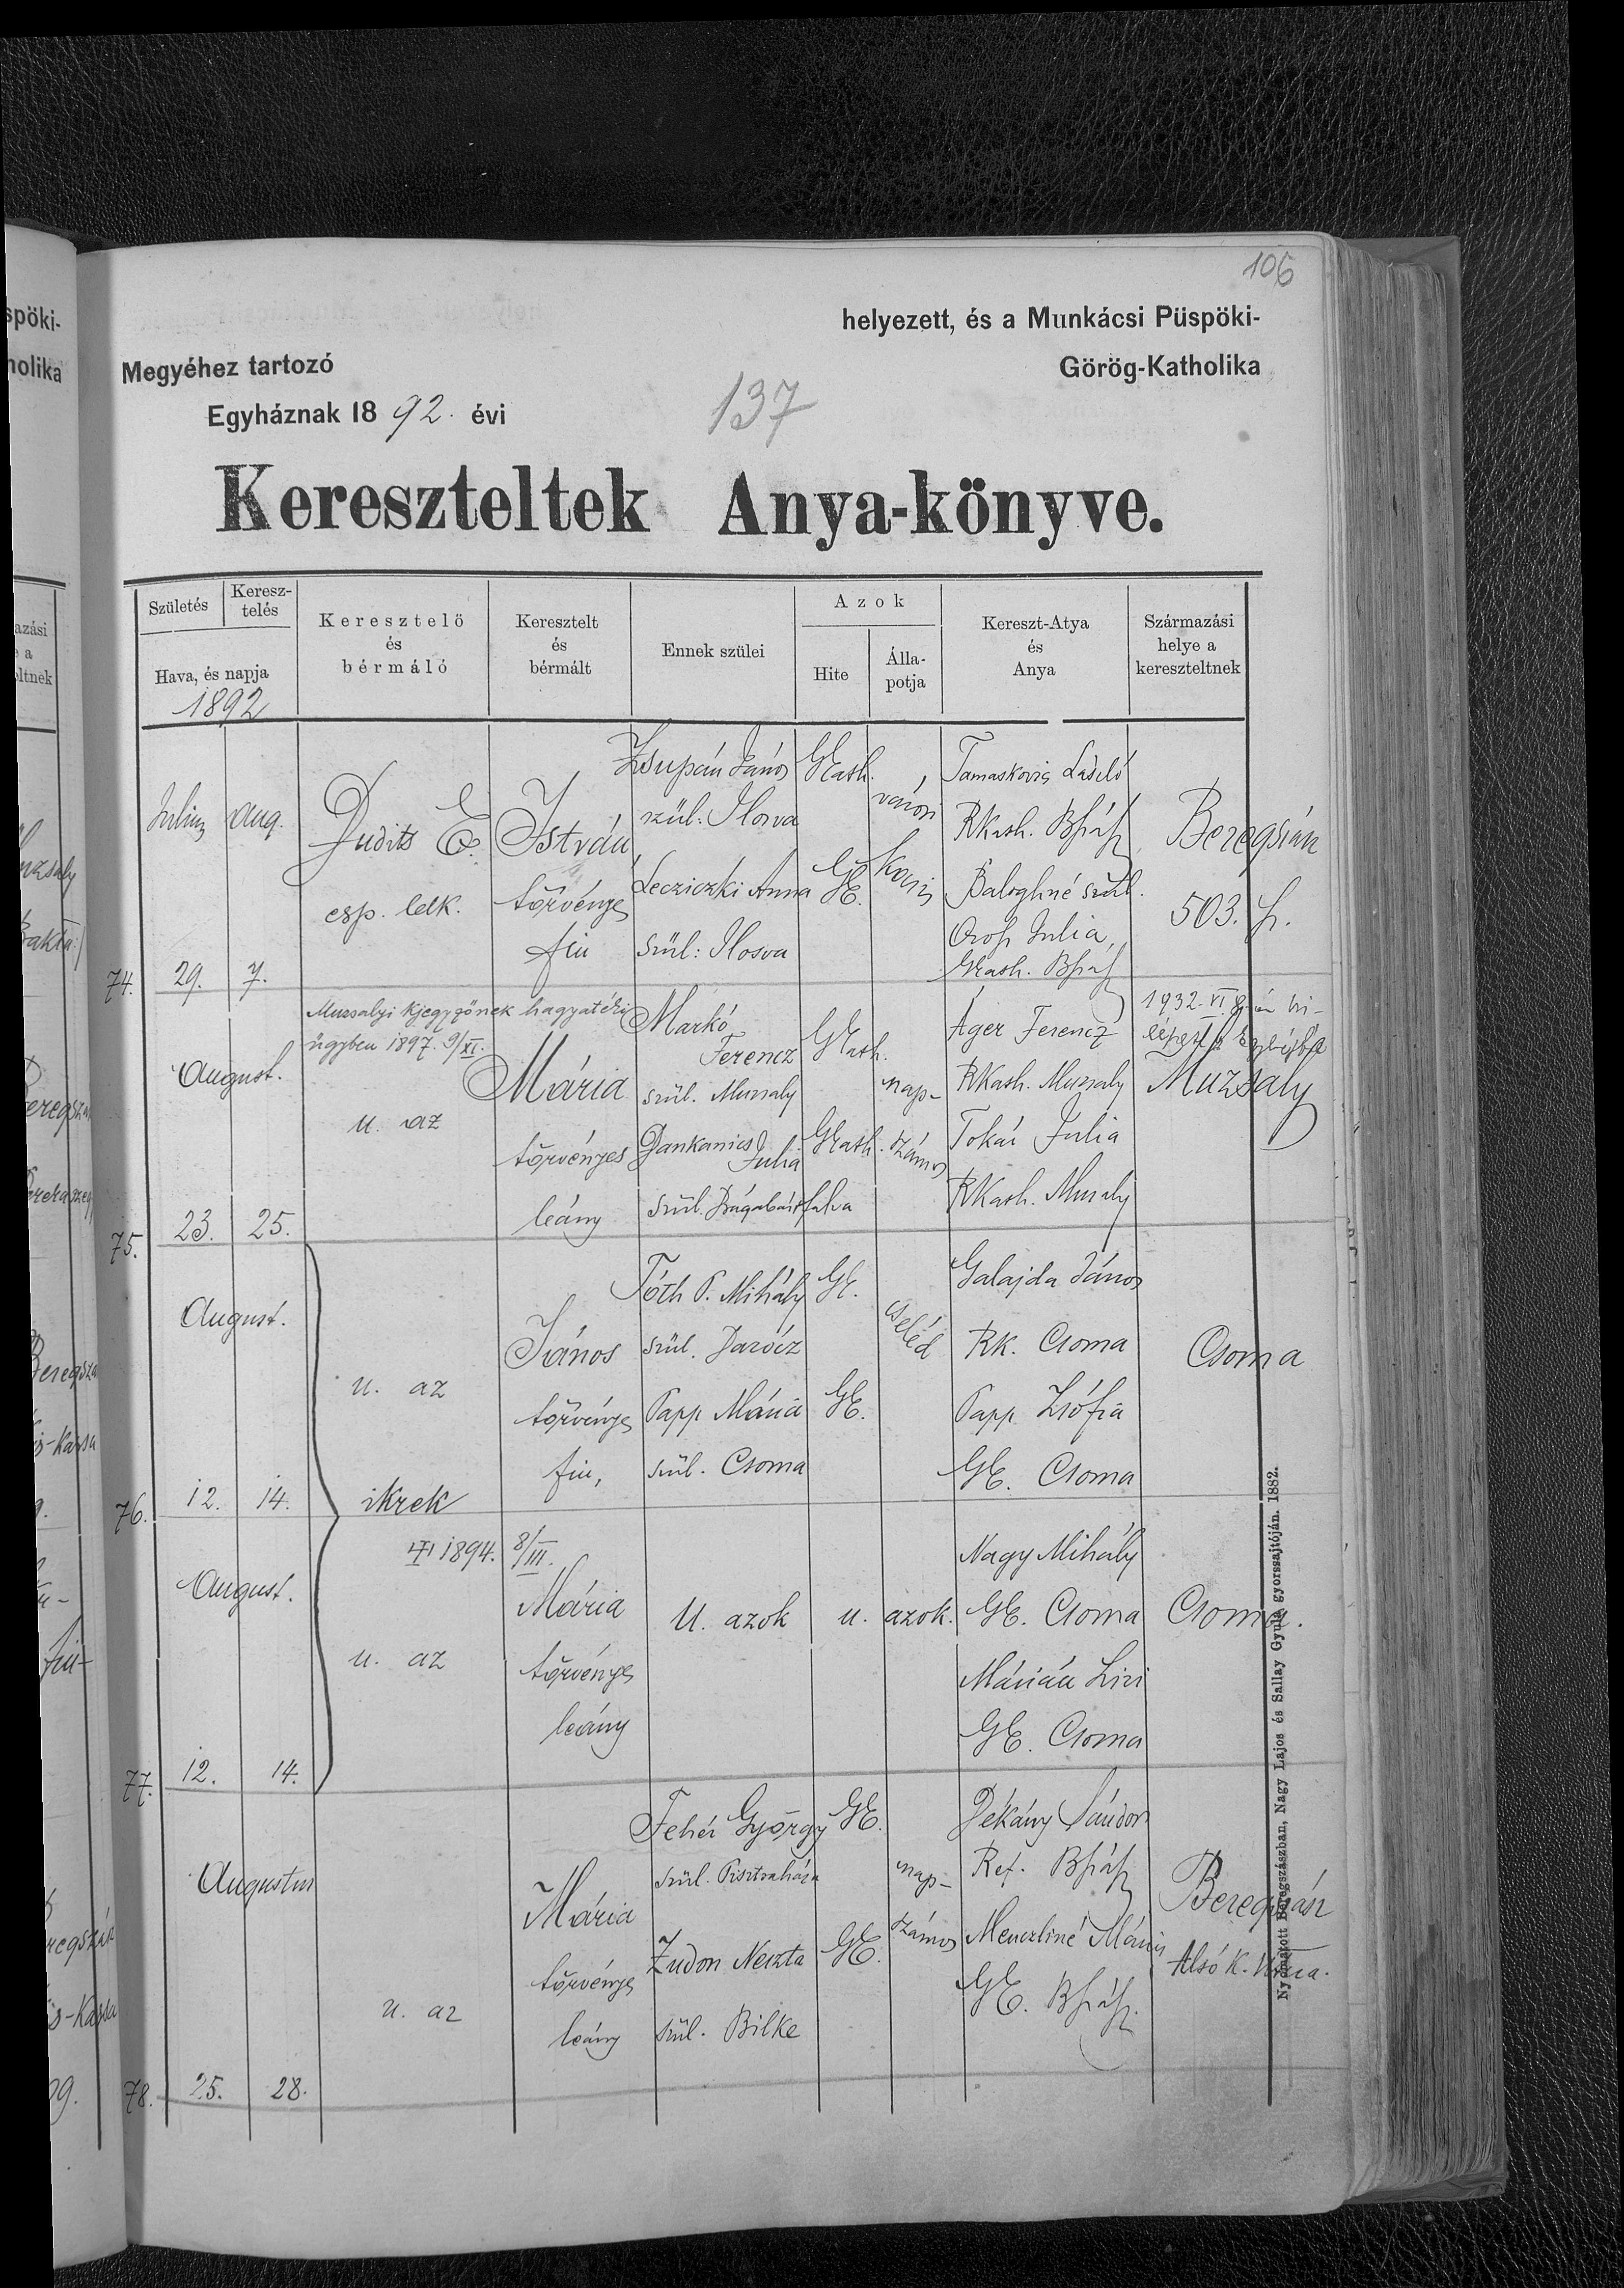 106
helyezett, és a Munkácsi Püspöki-
Megyéhez tartozó
Görög-Katholika
Egyháznak 1892. évi
137
Kereszteltek Anya-könyve.
Születés
Keresz-
telés
Hava, és napja
1892
Keresztelő
és
bérmáló
Keresztelt
és
bérmált
Ennek szülei
Azok
Hite
Álla-
potja
Kereszt-Atya
és
Anya
Származási
helye a
kereszteltnek
74.
Julius
29.
Aug.
7.
Dudits E.
esp. lelk.
István
törvényes
fiu
Zsupán János
szül. Ilosva
Lecziczki Anna
szül: Ilosva
GKath.
GK.
városi
kocsis
Tamaskovics László
RKath. Bszász
Baloghné szül.
Orosz Julia
GKath. Bszász
Beregszász
503. h.
75.
August.
23.
25.
Muzsalyi kjegyzőnek hagyatéki
ügyben 1897. 9/XI.
u. az
Mária
törvényes
leány
Markó
Ferencz
szül. Muzsaly
Dankanics
Julia
szül. Drágabártfalva
GKath.
GKath.
nap-
számos
Áger Ferencz
RKath. Muzsaly
Tokár Julia
RKath. Muzsaly
1932. VI. 8-án ki-
lépett a
Muzsaly
76.
August.
12.
14.
u. az
ikrek
János
törvényes
fiu,
Tóth P. Mihály
szül. Darócz
Papp Mária
szül. Csoma
GK.
GK.
cseléd
Galajda János
RK. Csoma
Papp Zsófia
GK. Csoma
Csoma
77.
August.
12.
14.
1894. 8/III.
u. az
Mária
törvényes
leány
U. azok
u. azok.
Nagy Mihály
GK. Csoma
Márián Lizi
GK. Csoma
Csoma.
78.
Augustus
25.
28.
u. az
Mária
törvényes
leány
Fehér György
szül. Pisztraháza
Zudon Neszta
szül. Bilke
GK.
GK.
nap-
számos
Dékány Sándor
Ref. Bszász
Menczliné Mária
GK. Bszász.
Beregszász
Alsó K.
Nyomatott Beregszászban, Nagy Lajos és Sallay Gyula gyorssajtóján. 1882.
spöki-
holika
azási
e a
eltnek